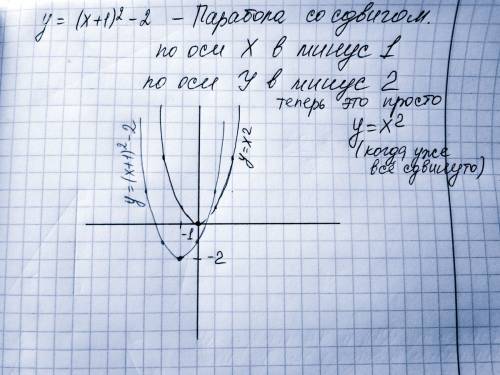 y = (x+1)² - 2 - Парабола со сдвигом.
по оси X в минус 1
по оси Y в минус 2
теперь это просто
y = x²
(когда уже
всё сдвинуто)
y=(x+1)²-2
y=x²
-1
-2